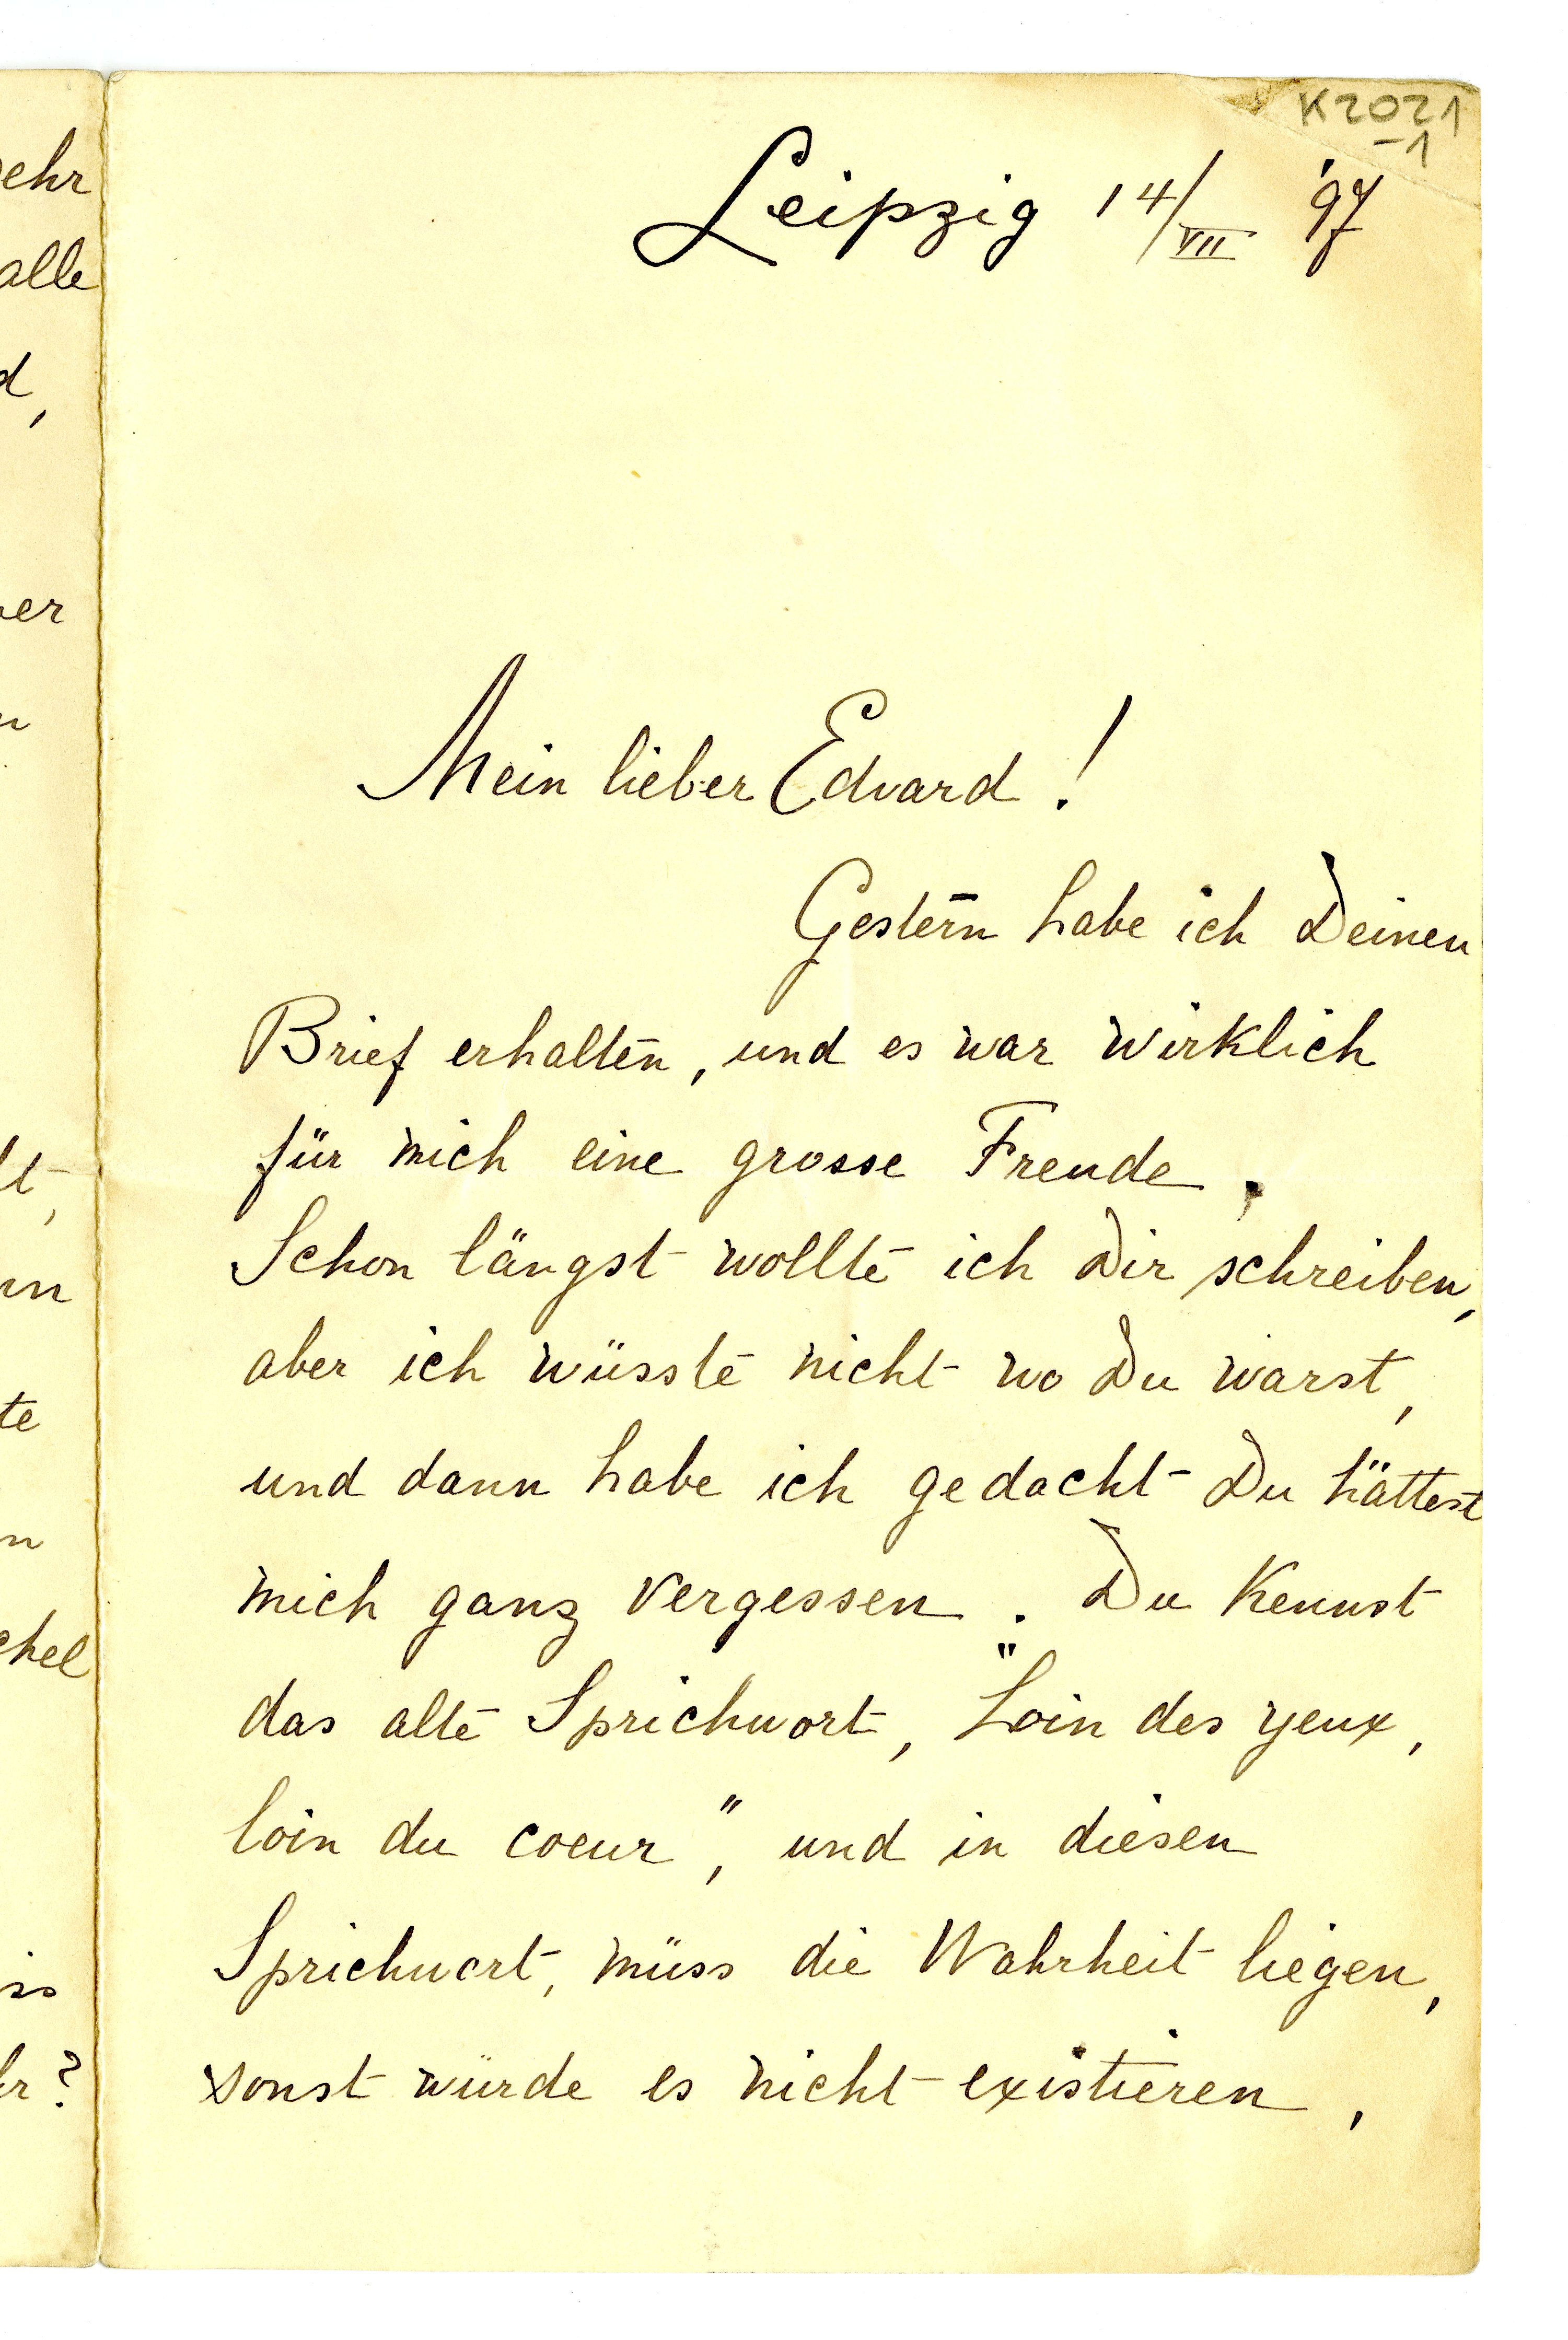 ehr
alle
d,
er
n
lt,
nn
te
n
chel
iss
hr?
K2021
-1
Leipzig 14/VII '97
Mein lieber Edvard!
Gestern habe ich Deinen
Brief erhalten, und es war wirklich
für mich eine grosse Freude.
Schon längst wollte ich Dir schreiben,
aber ich wüsste nicht wo Du warst,
und dann habe ich gedacht Du hättest
mich ganz vergessen. Du kennst
das alte Sprichwort, "Loin des yeux,
loin du coeur", und in diesen
Sprichwort, müss die Wahrheit liegen,
sonst würde es nicht existieren,